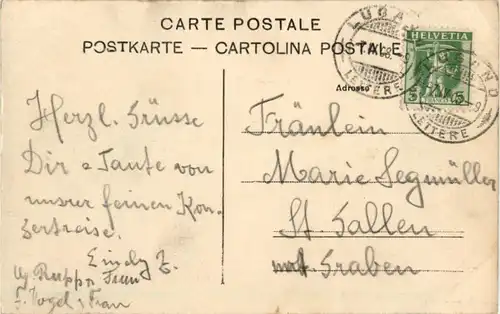 CARTE POSTALE
POSTKARTE — CARTOLINA POSTALE
LUGANO
LETTERE
HELVETIA
5 FRANCO 5
LUGANO
LETTERE
Adresse
Herzl. Grüsse
Dir & Tante von
unsrer feinen Kon-
zertreise.
Emdy Z.
Rupp
Frau
Vogel & Frau
Fräulein
Marie Segmüller
St Gallen
Graben